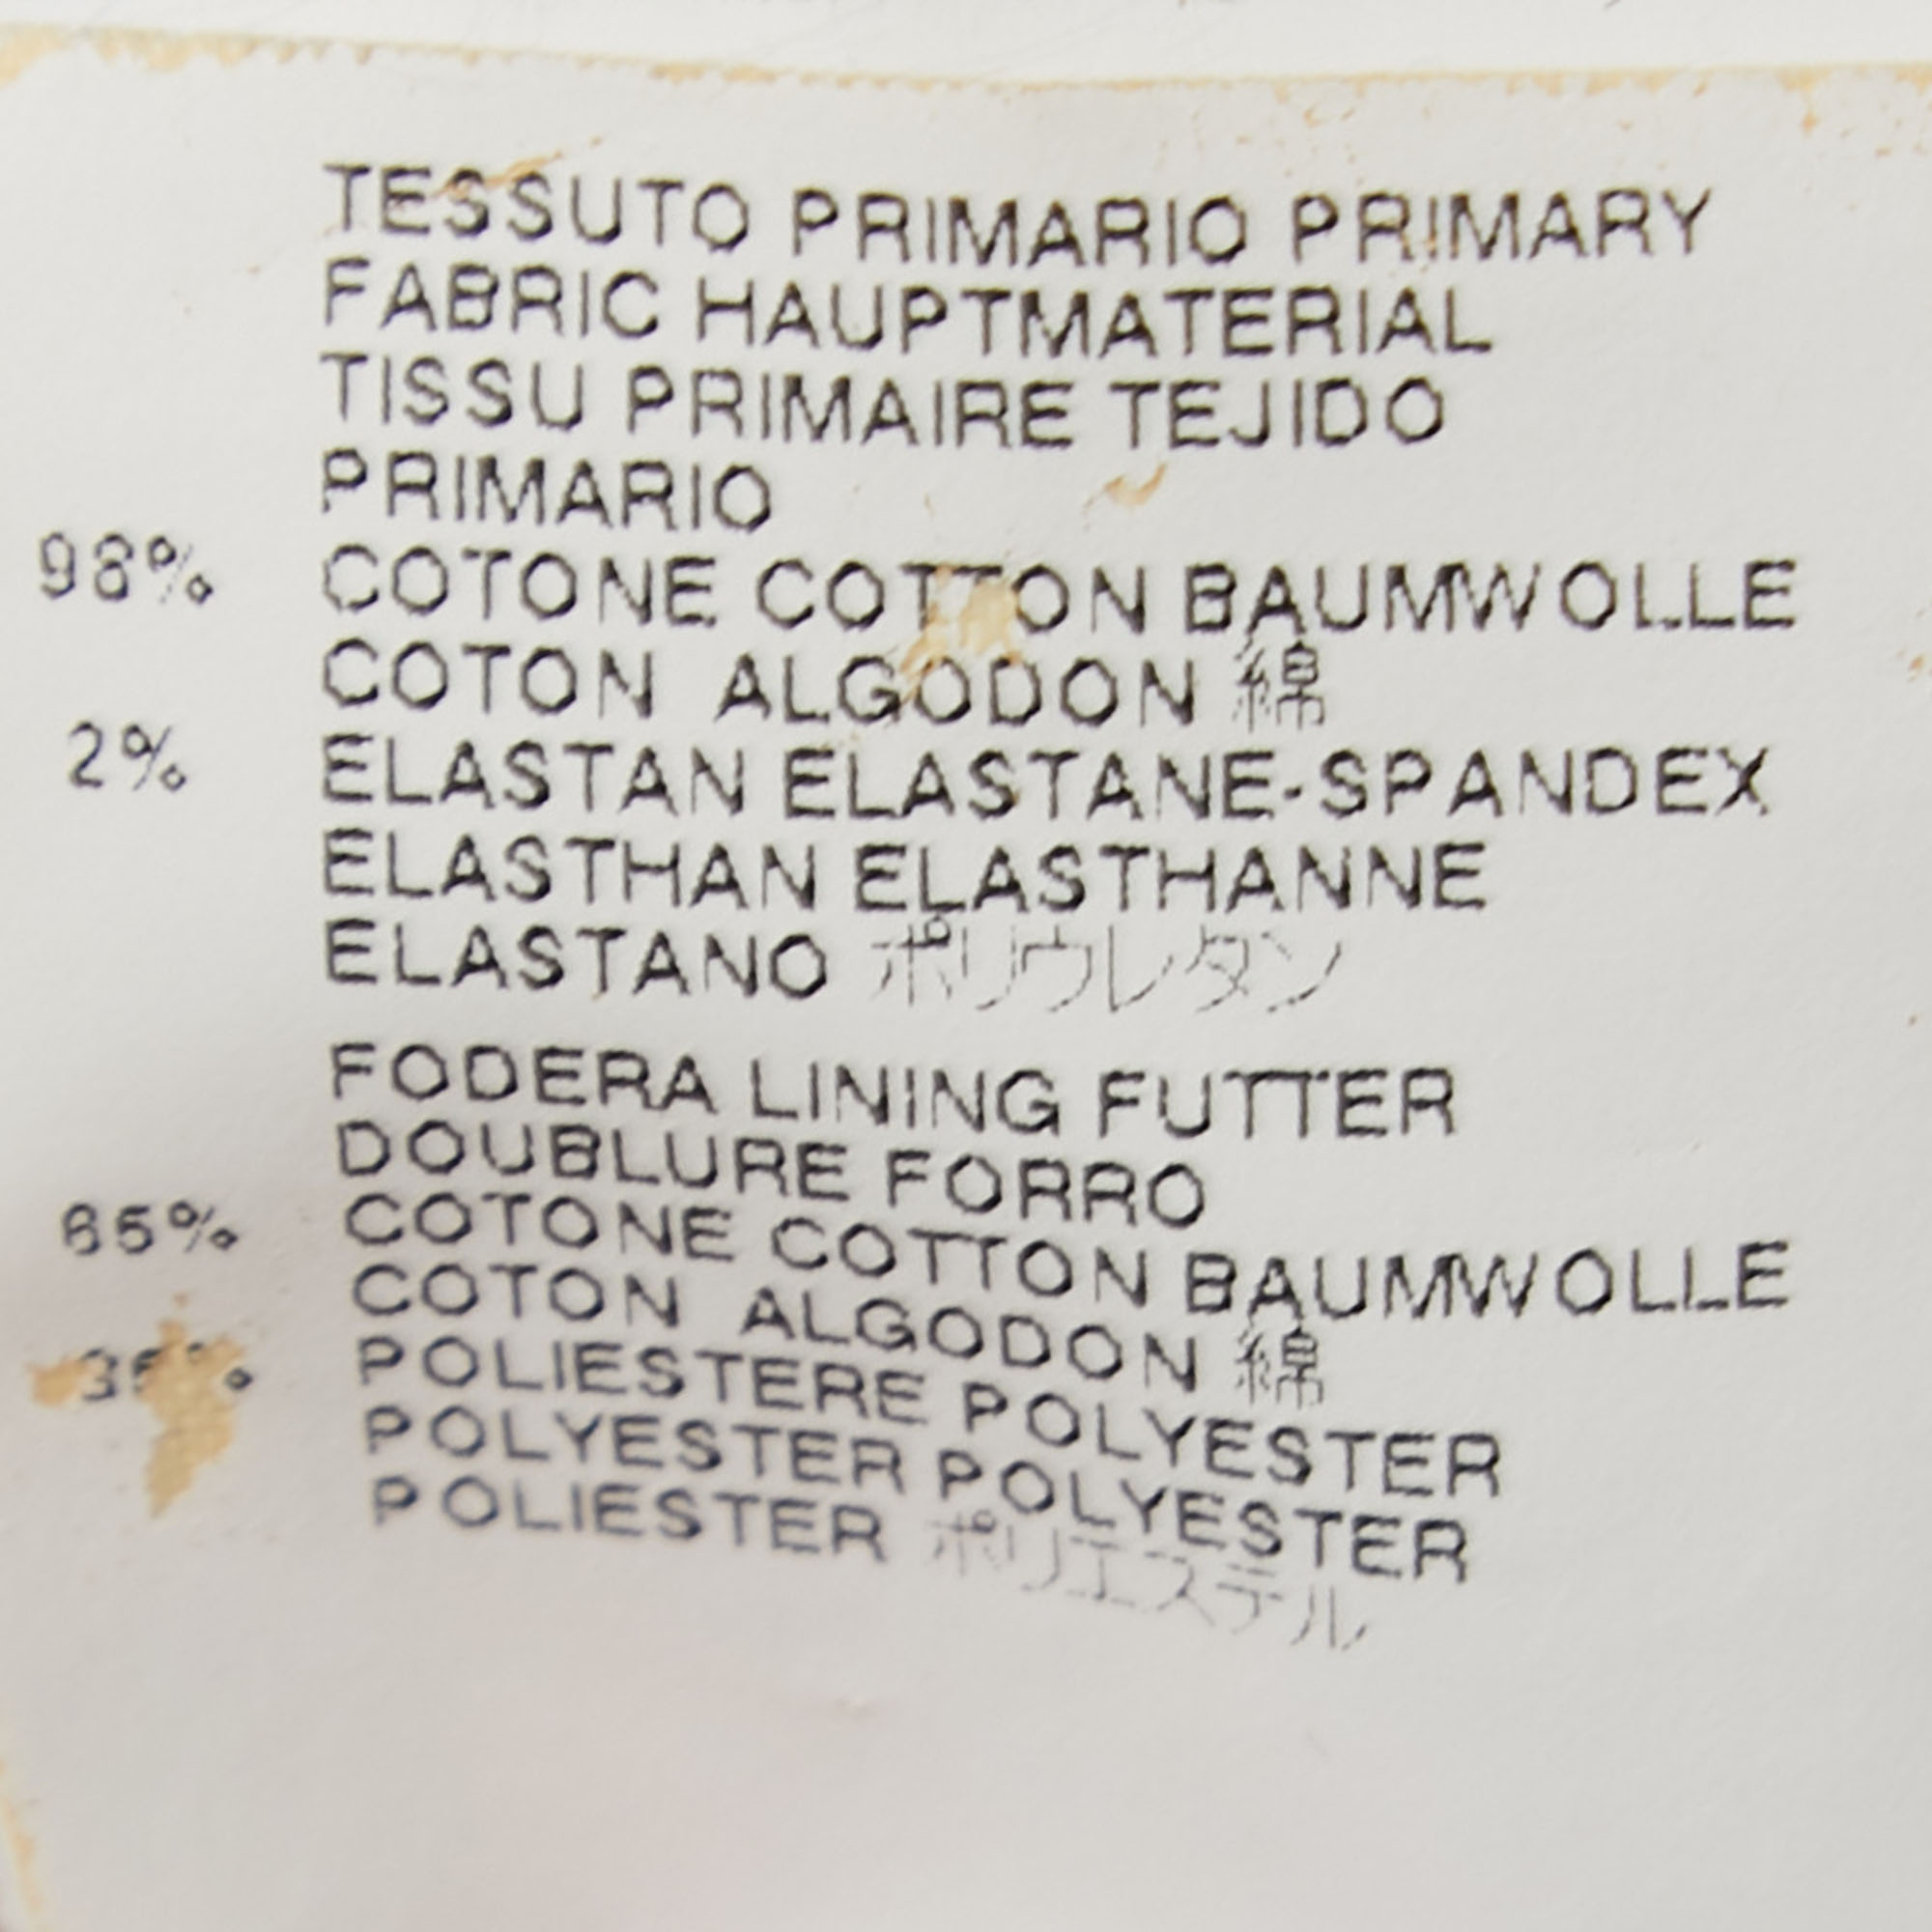 TESSUTO PRIMARIO PRIMARY
FABRIC HAUPTMATERIAL
TISSU PRIMAIRE TEJIDO
PRIMARIO
98% COTONE COTTON BAUMWOLLE
COTON ALGODON 綿
2% ELASTAN ELASTANE-SPANDEX
ELASTHAN ELASTHANNE
ELASTANO ポリウレタン
FODERA LINING FUTTER
DOUBLURE FORRO
65% COTONE COTTON BAUMWOLLE
COTON ALGODON 綿
POLIESTERE POLYESTER
POLYESTER POLYESTER
POLIESTER ポリエステル